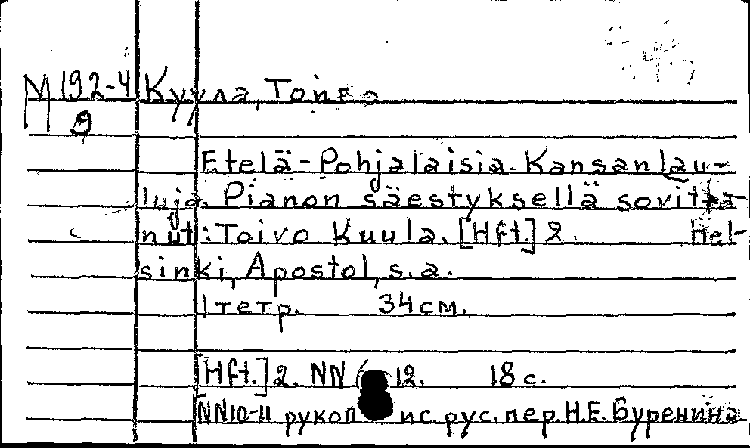 М 192-4 Куула, Тойво
9
Etelä-Pohjalaisia Kansanlau-
luja. Pianon säestyksellä sovitta-
nut: Toivo Kuula. [Hft.] 2. Hel-
sinki, Apostol, s.a.
1 тетр. 34 см.
[Hft.] 2. NN 12. 18 с.
NN10-11 рукопис. рус. пер. Н.Е. Буренина